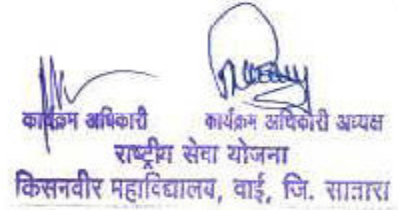 कार्यक्रम अधिकारी कार्यक्रम अधिकारी अध्यक्ष
राष्ट्रीय सेवा योजना
किसनवीर महाविद्यालय, वाई, जि. सातारा